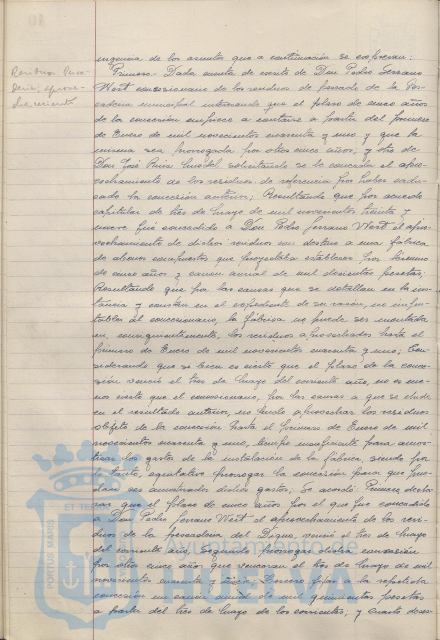 urgencia de los asuntos que a continuación se expresan:
Primero. Dada cuenta de escrito de Don Pedro Serrano
West concesionario de los residuos de pescado de la Pes-
cadería municipal interesando que el plazo de cinco años
de la concesión empiece a contarse a partir del primero
de Enero de mil novecientos cuarenta y uno, y que la
misma sea prorrogada por otros cinco años; y otro de
Don José Ruiz solicitando se le conceda el apro-
vechamiento de los residuos de referencia por haber cadu-
cado la concesión anterior; Resultando que por acuerdo
capitular de tres de Mayo de mil novecientos treinta y
nueve fue concedido a Don Pedro Serrano West el apro-
vechamiento de dichos residuos con destino a una fábrica
de abonos compuestos que proyectaba establecer por término
de cinco años y canon anual de mil doscientas pesetas;
Resultando que por las causas que se detallan en la ins-
tancia y constan en el expediente de su razón, no impu-
tables al concesionario, la fábrica no pudo ser montada
ni, consiguientemente, los residuos aprovechados hasta el
primero de Enero de mil novecientos cuarenta y uno; Con-
siderando que si bien es cierto que el plazo de la conce-
sión venció el tres de Mayo del corriente año, no es me-
nos cierto que el concesionario, por las causas a que se alude
en el resultado anterior, no pudo aprovechar los residuos
objeto de la concesión hasta el primero de Enero de mil
novecientos cuarenta y uno, tiempo insuficiente para amor-
tizar los gastos de la instalación de la fábrica, siendo por
tanto, equitativo prorrogar la concesión para que pue-
dan ser amortizados dichos gastos; Se acordó: Primero decla-
rar que el plazo de cinco años por el que fue concedido
a Don Pedro Serrano West el aprovechamiento de los resi-
duos de la pescadería del Digno, venció el tres de Mayo
del corriente año. Segundo: prorrogar dicha concesión
por otros cinco años que vencerán el tres de Mayo de mil
novecientos cuarenta y nueve; Tercero fijar a la repetida
concesión un canon anual de mil quinientas pesetas
a partir del tres de Mayo de los corrientes, y cuarto deses-
Residuos Pesca-
dería,
Ayuntamiento de
PORTUS MARIS ET TERRAE